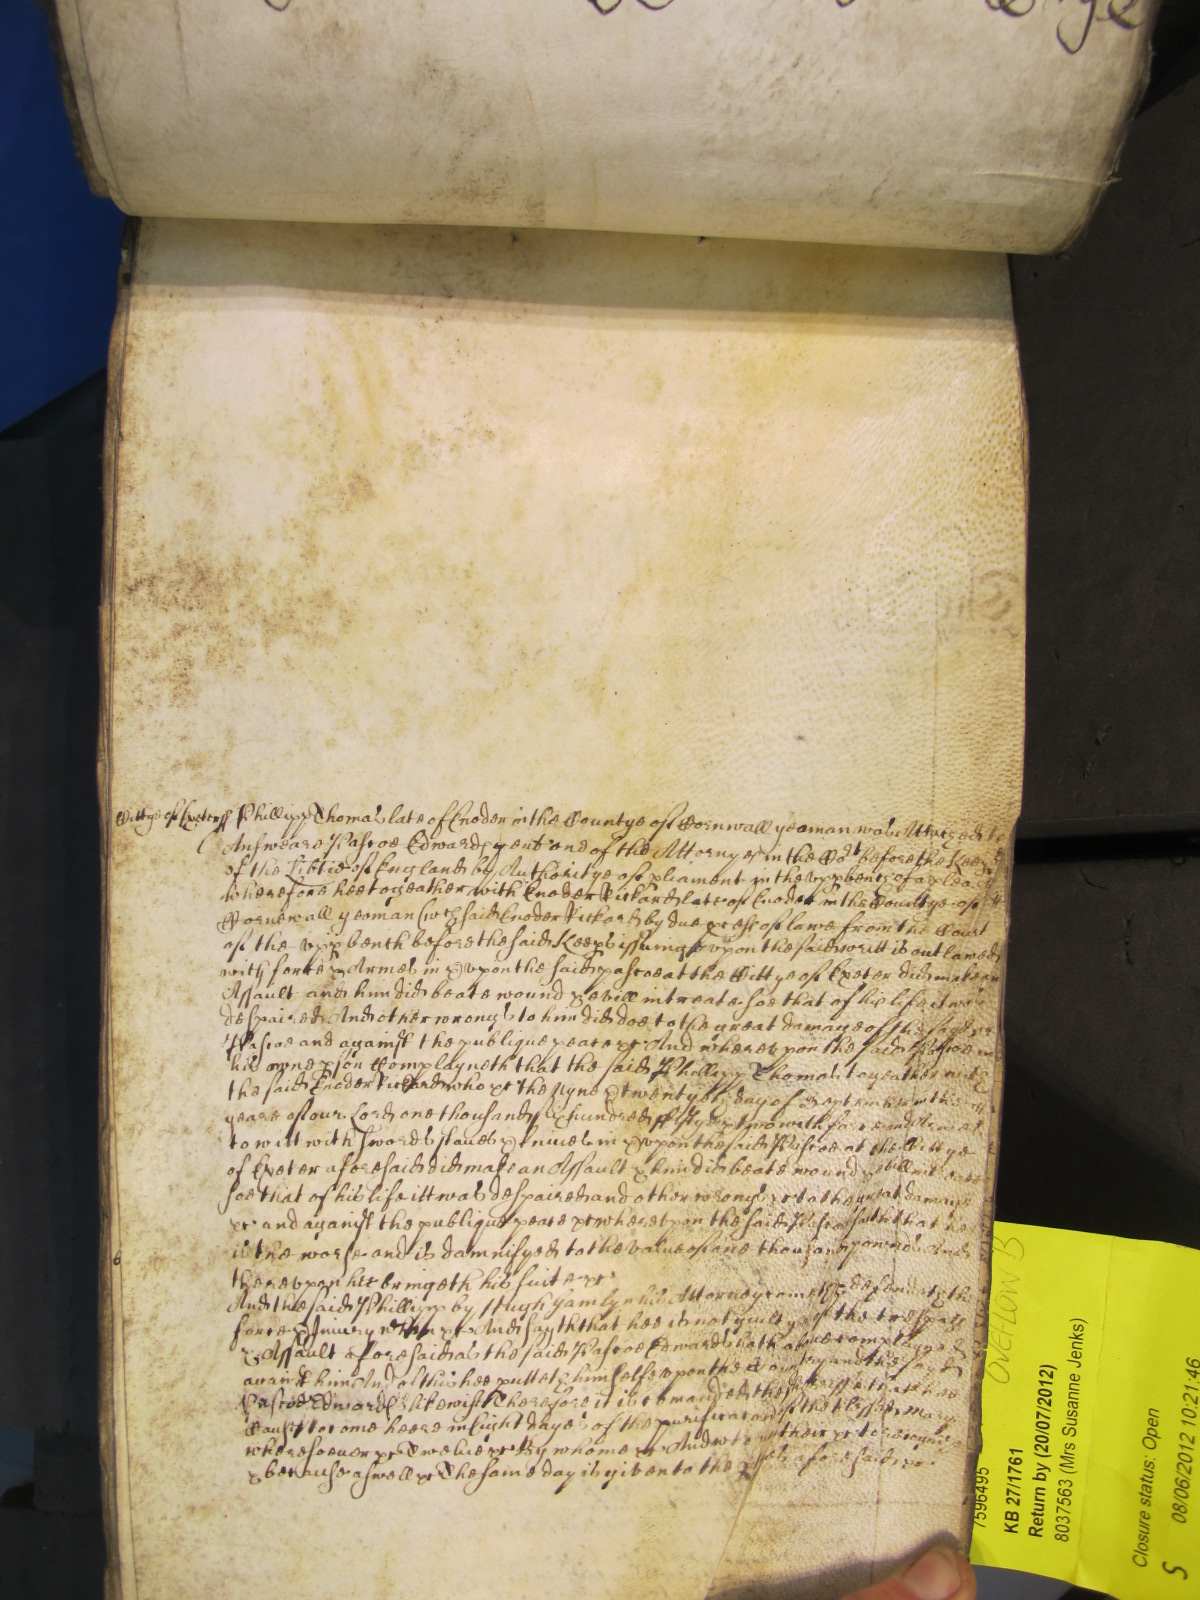 Cittye of Exeter ss Phillipp Thomas late of Enoder in the Countye of Cornwall yeoman was Attatched to
Answeare Pascoe Edwards gent one of the Attornyes in the Co't before the Keep's
of the Lib'tie of England by Authoritye of p'liament in the vpp bench of a plea
wherefore hee togeather with Enoder Rickard late of Enoder in the Countye of
Cornewall yeoman (wch said Enoder Rickard by due p'cesse of lawe from the Court
of the vpp bench before the said Keep's issuinge vpon the said writt is outlawed
with force & Armes in & vpon the said pascoe at the Cittye of Exeter did make an
Assault and him did beate wound & evill intreate soe that of his life it was
despaired And other wrongs to him did doe to the great damage of the sayd
Pascoe and against the publique peace &c And wherevpon the said Pascoe in
his owne p'son Complayneth that the said Phillipp Thomas togeather with
the said Enoder Rickard who &c the Nyne & twentyeth day of September in the
yeare of our Lord one thousand six hundred fiftye & two with force and Armes
to witt with swords staues & kniues in & vpon the said Pascoe at the Cittye
of Exeter aforesaid did make an Assault & him did beate wound & evill intreate
soe that of his life itt was despaired and other wrongs &c to the great damage
&c and against the publique peace &c wherevpon the said Pascoe saith that he
is the worse and is damnifyed to the value of one thousand pownds And
therevpon hee bringeth his suite &c
And the said Phillipp by Hugh Gamlyn his Attorney comes & defendeth the
force & Iniury when &c And sayth that hee is not guilty of the trespasse
& Assault aforesaid as the said Pascoe Edwards hath aboue complayned
against him And of this hee putteth himselfe vpon the Country and the sayd
Pascoe Edwards likewise Therefore it is com'anded the sheriffe that hee
Cause to come heere in Eight dayes of the purificac'on of the blessed Mary
wheresoeuer &c Twelue &c By whome &c And who neither &c to recognize
& because aswell &c The same day is given to the p'ties aforesaid &c
6
7596495
KB 27/1761
Return by (20/07/2012)
8037563 (Mrs Susanne Jenks)
OVERFLOW B
Closure status: Open
08/06/2012 10:21:46
S